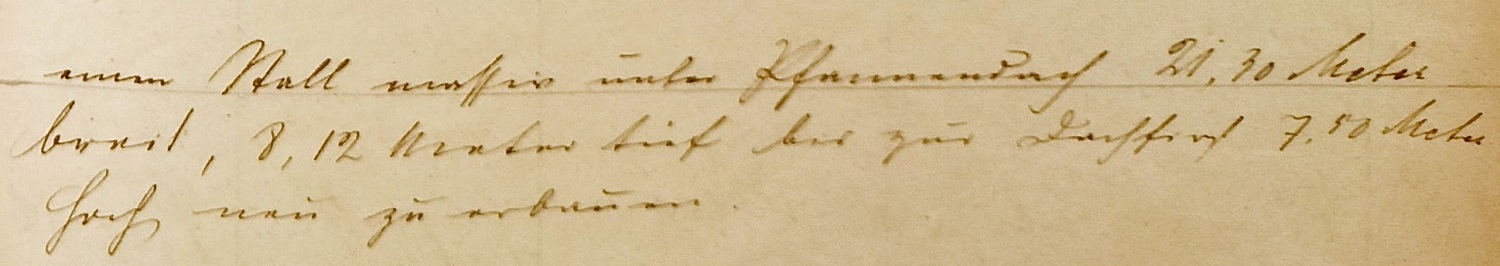 einen Stall massiv unter Pfannendach 21,30 Meter
breit, 8,12 Meter tief bis zur Dachfirst 7,50 Meter
hoch neu zu erbauen.